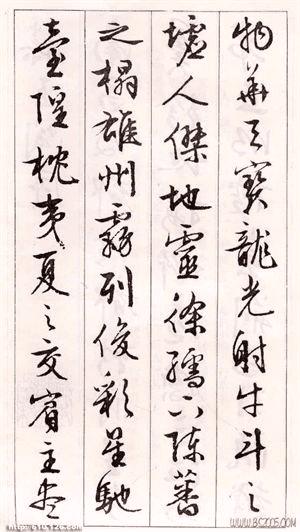 物華天寶龍光射牛斗之
墟人傑地靈徐孺下陳蕃
之榻雄州霧列俊彩星馳
臺隍枕夷夏之交賓主盡
www.BC2005.com